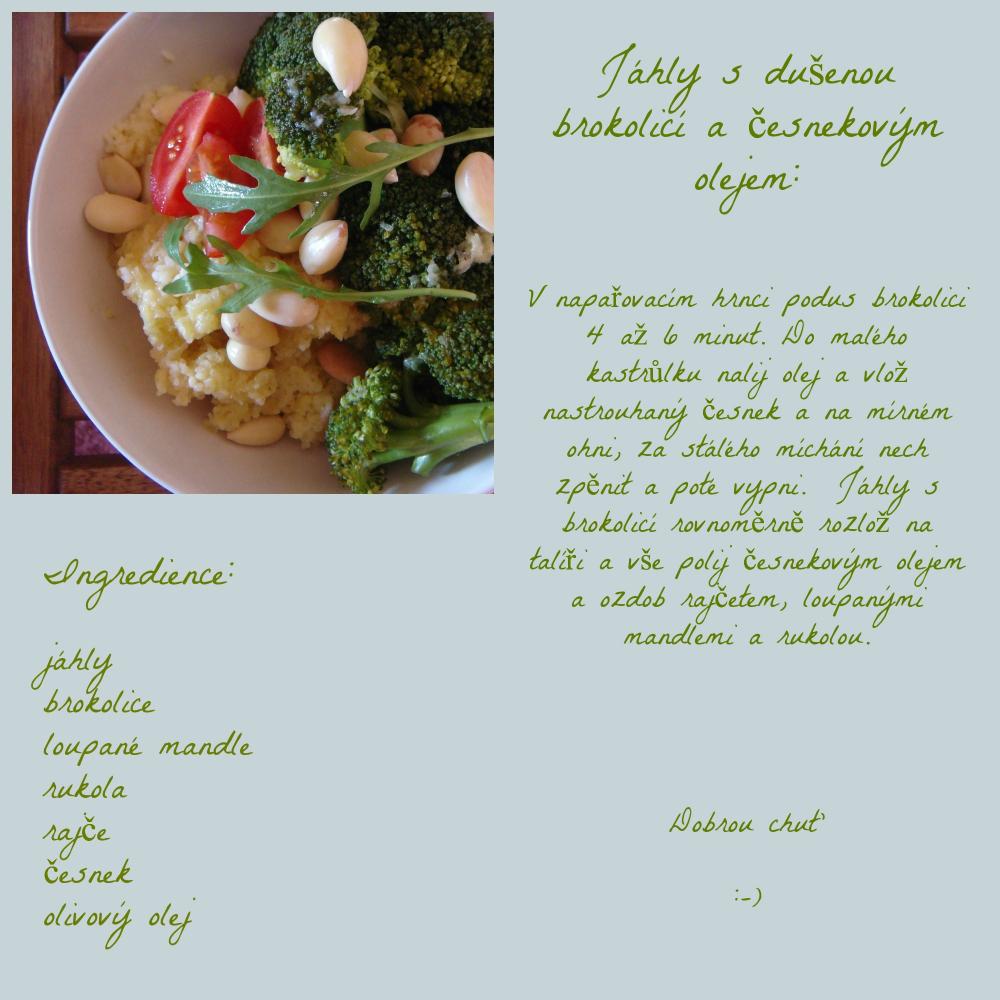 Jáhly s dušenou
brokolicí a česnekovým
olejem:
V napařovacím hrnci podus brokolici
4 až 6 minut. Do malého
kastrůlku nalij olej a vlož
nastrouhaný česnek a na mírném
ohni, za stálého míchání nech
zpěnit a poté vypni. Jáhly s
brokolicí rovnoměrně rozlož na
talíři a vše polij česnekovým olejem
a ozdob rajčetem, loupanými
mandlemi a rukolou.
Dobrou chuť
:-)
Ingredience:
jáhly
brokolice
loupané mandle
rukola
rajče
česnek
olivový olej